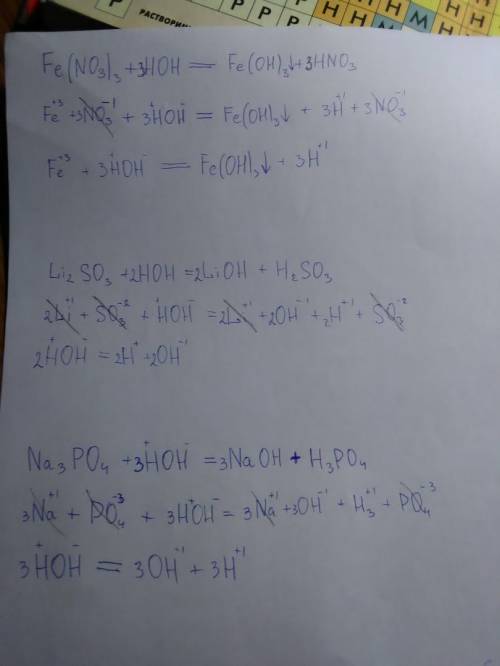 РАСТВОРИМ
Р Р Р Н Н М Н Н
Fe(NO₃)₃ + 3HOH = Fe(OH)₃↓ + 3HNO₃
Fe⁺³ + 3NO₃⁻¹ + 3H⁺OH⁻ = Fe(OH)₃↓ + 3H⁺¹ + 3NO₃⁻¹
Fe⁺³ + 3H⁺OH⁻ = Fe(OH)₃↓ + 3H⁺¹
Li₂SO₃ + 2HOH = 2LiOH + H₂SO₃
2Li⁺¹ + SO₃⁻² + H⁺OH⁻ = 2Li⁺¹ + 2OH⁻¹ + 2H⁺¹ + SO₃⁻²
2H⁺OH⁻ = 2H⁺ + 2OH⁻¹
Na₃PO₄ + 3H⁺OH⁻ = 3NaOH + H₃PO₄
3Na⁺¹ + PO₄⁻³ + 3H⁺OH⁻ = 3Na⁺¹ + 3OH⁻¹ + H₃⁺¹ + PO₄⁻³
3H⁺OH⁻ = 3OH⁻¹ + 3H⁺¹